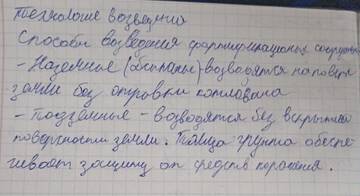 Технология возведения
Способы возведения фортификационных сооружен
- Наземные (обсыпные) возводятся на поверх
земли без отрывки котлована
- Подземные - возводятся без вскрытия
поверхности земли. Толща грунта обеспе
чивает защиту от средств поражения.